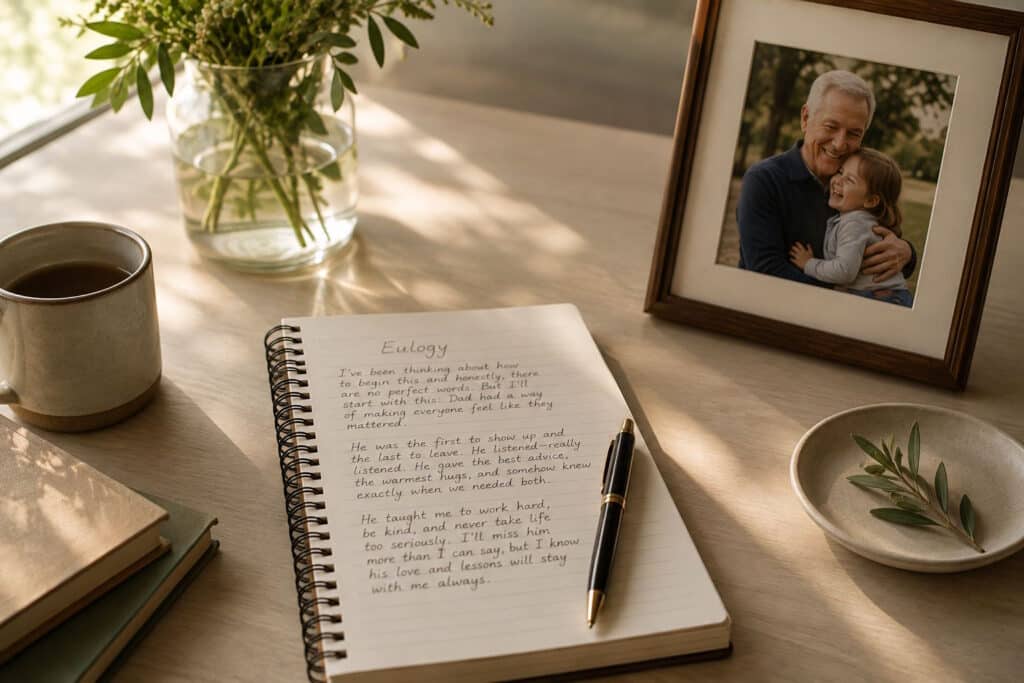 Eulogy
I've been thinking about how
to begin this and honestly, there
are no perfect words. But I'll
start with this: Dad had a way
of making everyone feel like they
mattered.
He was the first to show up and
the last to leave. He listened—really
listened. He gave the best advice,
the warmest hugs, and somehow knew
exactly when we needed both.
He taught me to work hard,
be kind, and never take life
too seriously. I'll miss him
more than I can say, but I know
his love and lessons will stay
with me always.